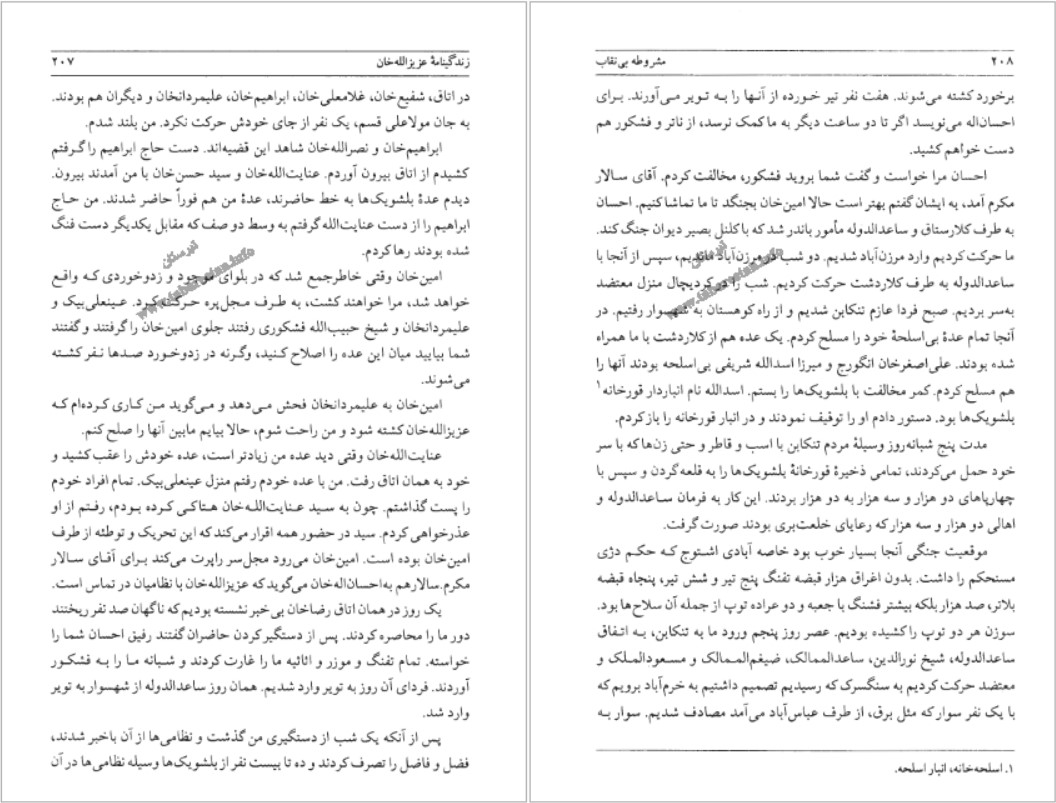 زندگینامهٔ عزیزالله‌خان ۲۰۷
در اتاق، شفیع‌خان، غلامعلی‌خان، ابراهیم‌خان، علیمردانخان و دیگران هم بودند.
به جان مولاعلی قسم، یک نفر از جای خودش حرکت نکرد. من بلند شدم.
ابراهیم‌خان و نصرالله‌خان شاهد این قضیه‌اند. دست حاج ابراهیم را گرفتم
کشیدم از اتاق بیرون آوردم. عنایت‌الله‌خان و سید حسن‌خان با من آمدند بیرون.
دیدم عدهٔ بلشویک‌ها به خط حاضرند، عدهٔ من هم فوراً حاضر شدند. من حاج
ابراهیم را از دست عنایت‌الله گرفتم به وسط دو صف که مقابل یکدیگر دست فنگ
شده بودند رها کردم.
امین‌خان وقتی خاطرجمع شد که در بلوای موجود و زدوخوردی که واقع
خواهد شد، مرا خواهند کشت، به طرف مجل‌پره حرکت کرد. عینعلی‌بیک و
علیمردانخان و شیخ حبیب‌الله فشکوری رفتند جلوی امین‌خان را گرفتند و گفتند
شما بیایید میان این عده را اصلاح کنید، وگرنه در زدوخورد صدها نفر کشته
می‌شوند.
امین‌خان به علیمردانخان فحش می‌دهد و می‌گوید من کاری کرده‌ام که
عزیزالله‌خان کشته شود و من راحت شوم، حالا بیایم مابین آنها را صلح کنم.
عنایت‌الله‌خان وقتی دید عده من زیادتر است، عده خودش را عقب کشید و
خود به همان اتاق رفت. من با عده خودم رفتم منزل عینعلی‌بیک. تمام افراد خودم
را پست گذاشتم. چون به سید عنایت‌الله‌خان هتاکی کرده بودم، رفتم از او
عذرخواهی کردم. سید در حضور همه اقرار می‌کند که این تحریک و توطئه از طرف
امین‌خان بوده است. امین‌خان می‌رود مجل‌سر راپرت می‌کند برای آقای سالار
مکرم. سالار هم به‌احسان‌اله‌خان می‌گوید که عزیزالله‌خان با نظامیان در تماس است.
یک روز در همان اتاق رضاخان بی‌خبر نشسته بودیم که ناگهان صد نفر ریختند
دور ما را محاصره کردند. پس از دستگیر کردن حاضران گفتند رفیق احسان شما را
خواسته. تمام تفنگ و موزر و اثاثیه ما را غارت کردند و شبانه ما را به فشکور
آوردند. فردای آن روز به تویر وارد شدیم. همان روز ساعدالدوله از شهسوار به تویر
وارد شد.
پس از آنکه یک شب از دستگیری من گذشت و نظامی‌ها از آن باخبر شدند،
فضل و فاضل را تصرف کردند و ده تا بیست نفر از بلشویک‌ها وسیله نظامی‌ها در آن
۲۰۸ مشروطه بی‌نقاب
برخورد کشته می‌شوند. هفت نفر تیر خورده از آنها را به تویر می‌آورند. برای
احسان‌اله می‌نویسد اگر تا دو ساعت دیگر به ما کمک نرسد، از ناتر و فشکور هم
دست خواهم کشید.
احسان مرا خواست و گفت شما بروید فشکور، مخالفت کردم. آقای سالار
مکرم آمد، به ایشان گفتم بهتر است حالا امین‌خان بجنگد تا ما تماشا کنیم. احسان
به طرف کلارستاق و ساعدالدوله مأمور باندر شد که با کلنل بصیر دیوان جنگ کند.
ما حرکت کردیم وارد مرزن‌آباد شدیم. دو شب در مرزن‌آباد ماندیم، سپس از آنجا با
ساعدالدوله به طرف کلاردشت حرکت کردیم. شب را در کردیچال منزل معتضد
به‌سر بردیم. صبح فردا عازم تنکابن شدیم و از راه کوهستان به شهسوار رفتیم. در
آنجا تمام عدهٔ بی‌اسلحهٔ خود را مسلح کردم. یک عده هم از کلاردشت با ما همراه
شده بودند. علی‌اصغرخان انگورج و میرزا اسدالله شریفی بی‌اسلحه بودند آنها را
هم مسلح کردم. کمر مخالفت با بلشویک‌ها را بستم. اسدالله نام انباردار قورخانه۱
بلشویک‌ها بود. دستور دادم او را توقیف نمودند و در انبار قورخانه را باز کردم.
مدت پنج شبانه‌روز وسیلهٔ مردم تنکابن با اسب و قاطر و حتی زن‌ها که با سر
خود حمل می‌کردند، تمامی ذخیرهٔ قورخانهٔ بلشویک‌ها را به قلعه‌گردن و سپس با
چهارپاهای دو هزار و سه هزار به دو هزار بردند. این کار به فرمان ساعدالدوله و
اهالی دو هزار و سه هزار که رعایای خلعت‌بری بودند صورت گرفت.
موقعیت جنگی آنجا بسیار خوب بود خاصه آبادی اشتوج که حکم دژی
مستحکم را داشت. بدون اغراق هزار قبضه تفنگ پنج تیر و شش تیر، پنجاه قبضه
بلاتر، صد هزار بلکه بیشتر فشنگ با جعبه و دو عراده توپ از جمله آن سلاح‌ها بود.
سوزن هر دو توپ را کشیده بودیم. عصر روز پنجم ورود ما به تنکابن، به اتفاق
ساعدالدوله، شیخ نورالدین، ساعدالممالک، ضیغم‌الممالک و مسعودالملک و
معتضد حرکت کردیم به سنگسرک که رسیدیم تصمیم داشتیم به خرم‌آباد برویم که
با یک نفر سوار که مثل برق، از طرف عباس‌آباد می‌آمد مصادف شدیم. سوار به
۱. اسلحه‌خانه، انبار اسلحه.
تبرستان
www.tabarestan.info
تبرستان
www.tabarestan.info